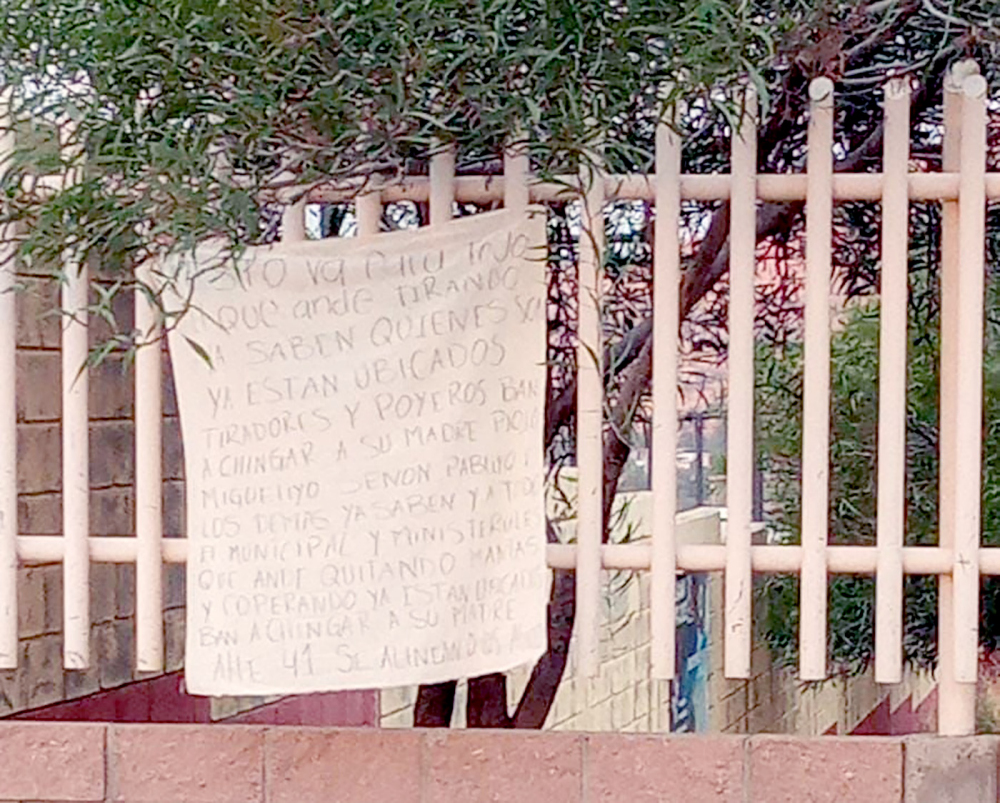 Esto va para todo
QUE ande TIRANDO
YA SABEN QUIENES SON
YA ESTAN UBICADOS
TIRADORES Y POYEROS BAN
A CHINGAR A SU MADRE
MIGUELIYO SENON PABLIYO
LOS DEMAS YA SABEN Y A TODO
EL MUNICIPAL Y MINISTERIALES
QUE ANDE QUITANDO
Y COPERANDO YA ESTAN UBICADOS
BAN A CHINGAR A SU MATRE
41 SE ALINEAN O